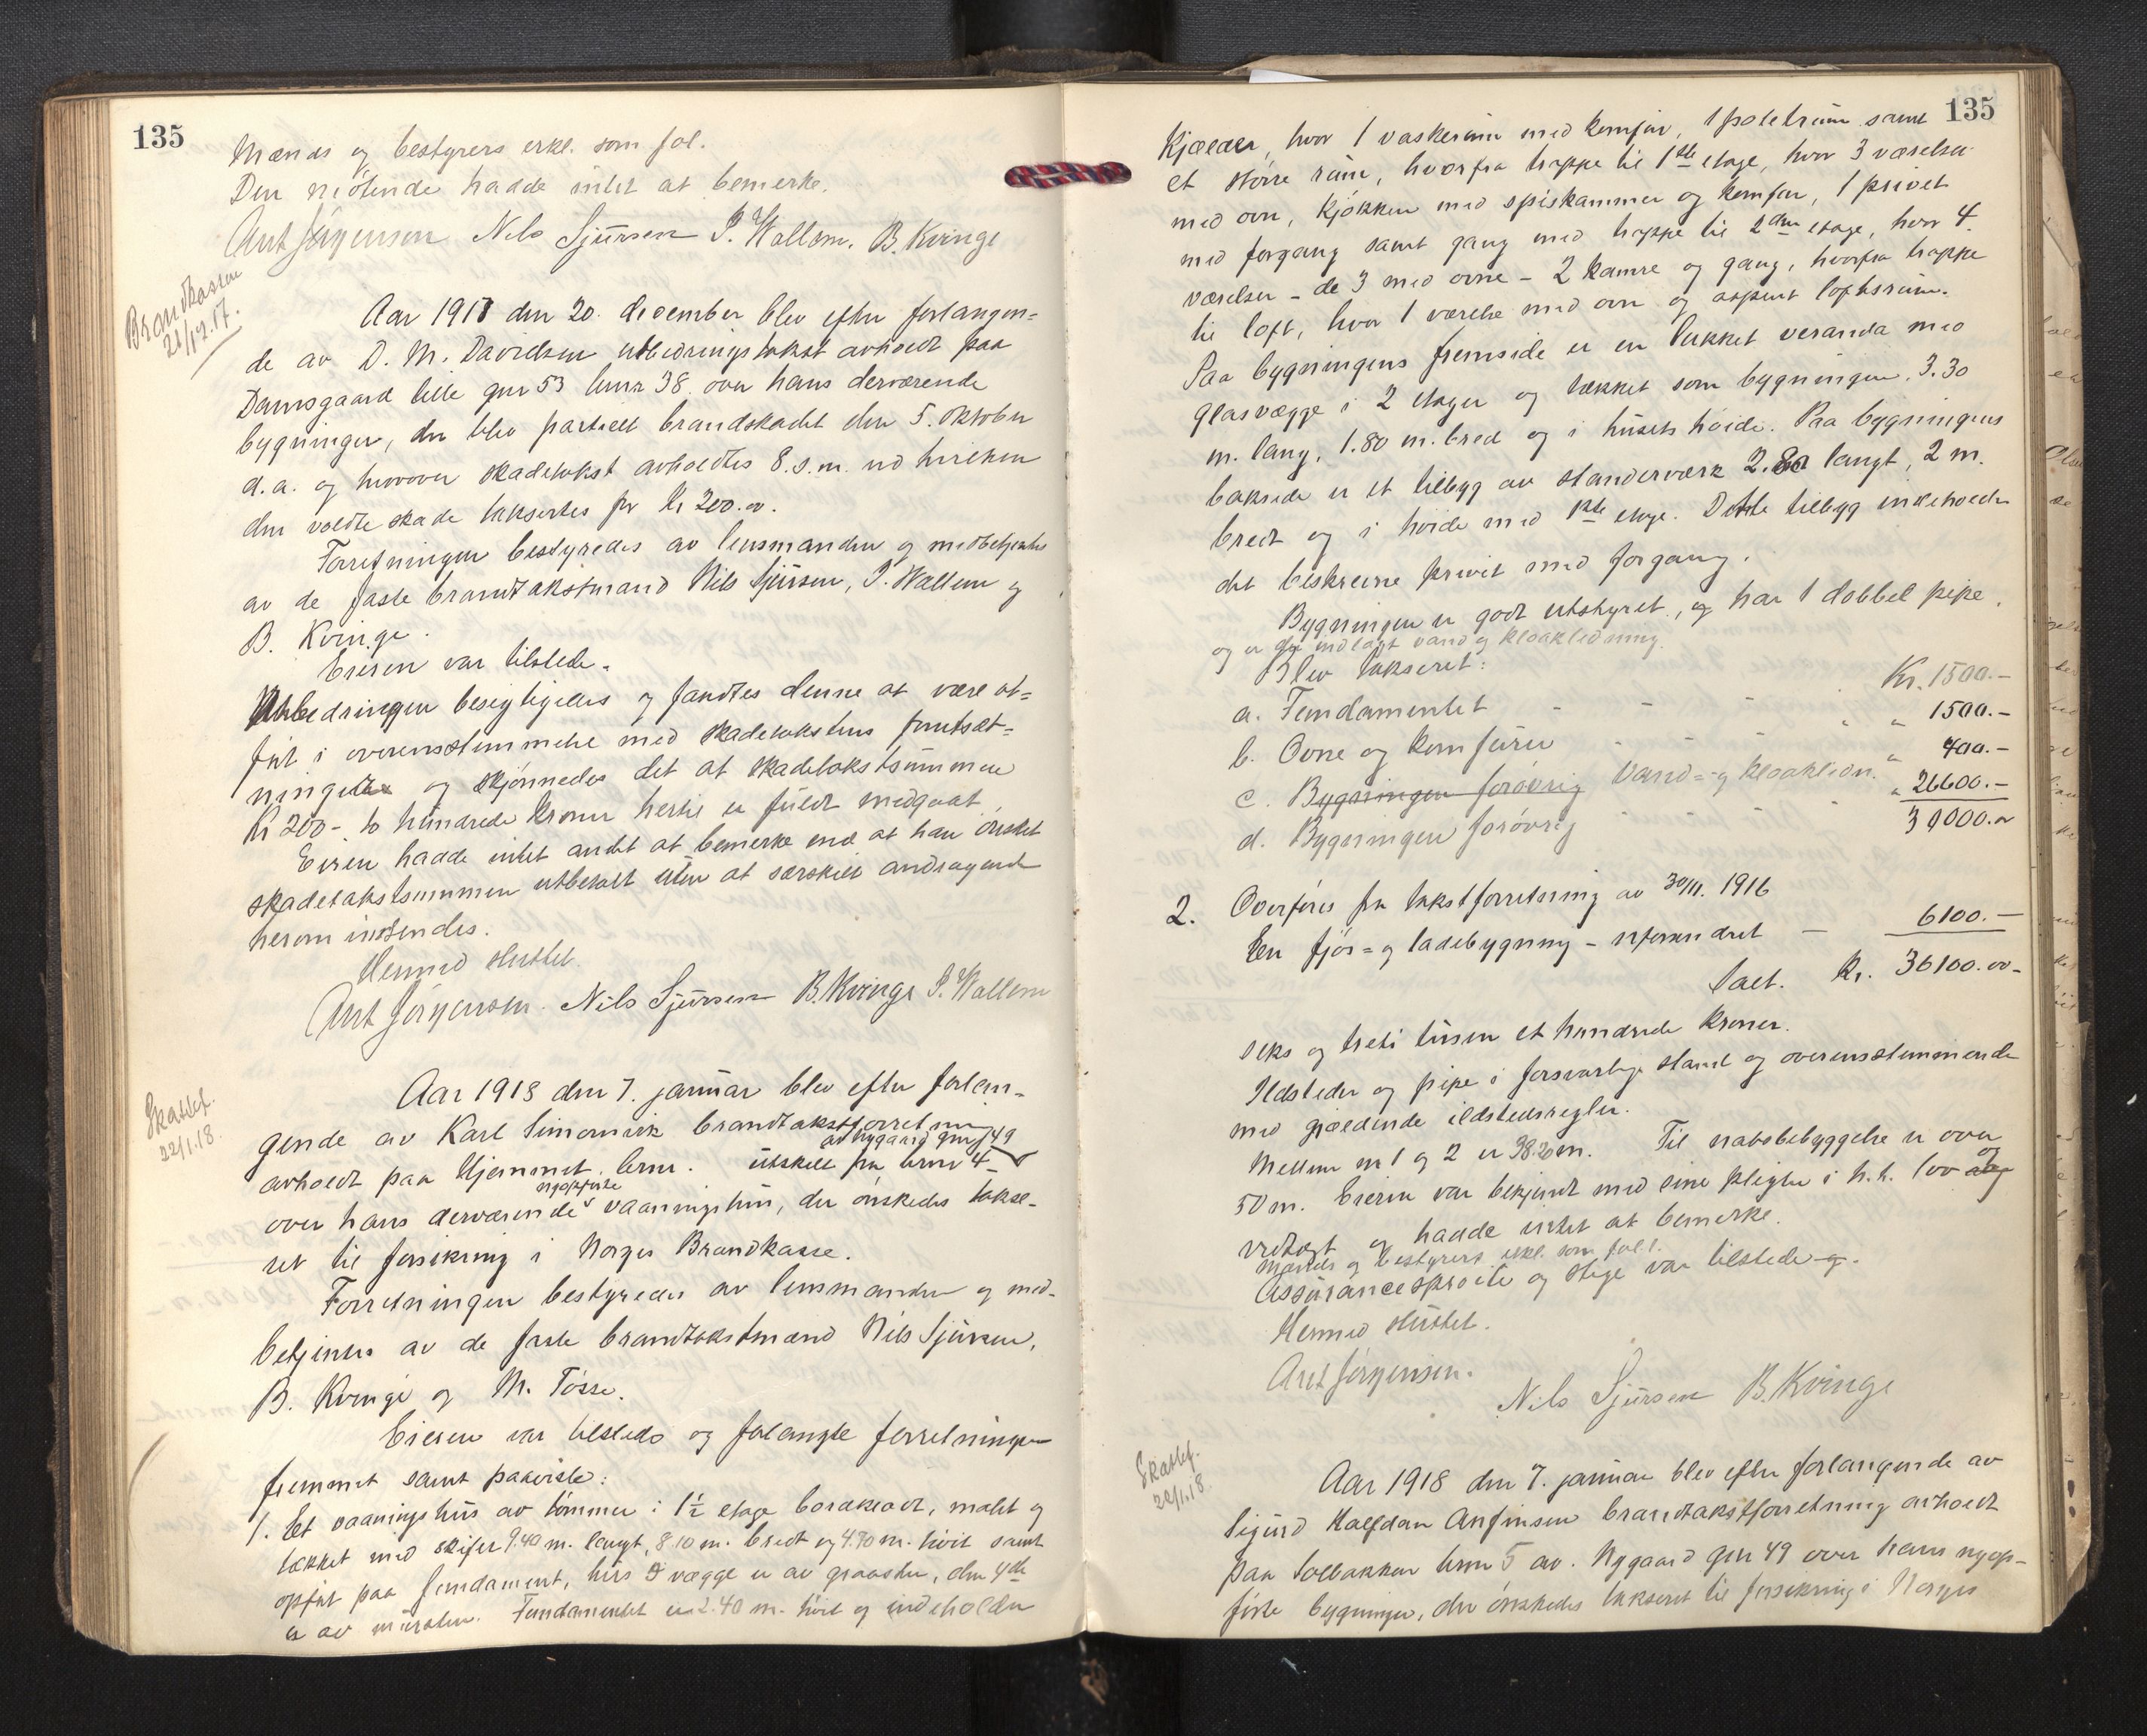 135
Mænds og bestyrers erkl. som fol.
Den mötende hadde intet at bemerke.
Ant Jørgensen Nils Sjursen P. Wallem. B. Kvinge
Brandkassen
21/12.17.
Aar 1917 den 20. december blev efter forlangen-
de av D. M. Davidsen utbedringstakst avholdt paa
Damsgaard lille gnr 53 bnr 38 over hans derværende
bygninger, der blev partielt brandskadet den 5. oktober
d.a. og hvorover skadetakst avholdtes 8. s.m. ved hvilken
den voldte skade taksertes for kr 200.00.
Forretningen bestyredes av lensmanden og medbetjentes
av de faste brandtakstmænd Nils Sjursen, P. Wallem og
B. Kvinge.
Eieren var tilstede.
Utbedringen besigtigedes og fandtes denne at være ut-
ført i overensstemmelse med skadetakstens forutsæt-
ninger og skjønnedes det at skadetakstsummen
Kr 200- to hundrede kroner hertil er fuldt medgaat.
Eieren hadde intet andet at bemerke end at han ønsket
skadetakstsummen utbetalt uten at særskilt andragende
herom indsendes.
Hermed sluttet.
Ant Jørgensen. Nils Sjursen B. Kvinge P. Wallem
Skattef.
22/1.18.
Aar 1918 den 7. januar blev efter forlan-
gende av Karl Simonvik brandtakstforretning
av Nygaard gnr 49
avholdt paa Hjemmet bnr. utskilt fra bnr 4
nyopførte
over hans derværende vaaningshus, der ønskedes takse-
ret til forsikring i Norges Brandkasse.
Forretningen bestyredes av lensmanden og med-
betjentes av de faste brandtakstmænd Nils Sjursen,
B. Kvinge og M. Tösse.
Eieren var tilstede og forlangte forretningen
fremmet samt paaviste:
1. Et vaaningshus av tømmer i 1½ etage bordklædt, malet og
tækket med skifer 9.40 m. langt, 8.10 m. bredt og 4.70 m. høit samt
opført paa fundament, hvis 3 vægge er av graasten, den 4de
er av mursten. Fundamentet er 2.40 m. høit og indeholder
135
Kjælder, hvor 1 vaskerum med komfur, 1 potetrum samt
et større rum, hvorfra trappe til 1ste etage, hvor 3 værelser
med ovn, kjøkken med spiskammer og komfur, 1 privet
med forgang samt gang med trappe til 2den etage, hvor 4
værelser - de 3 med ovne - 2 kamre og gang, hvorfra trappe
til loft, hvor 1 værelse med ovn og aapent loftsrum.
Paa bygningens fremside er en lukket veranda med
glasvægge i 2 etager og tækket som bygningen, 3.30
m. lang, 1.80 m. bred og i husets høide. Paa bygningens
bakside er et tilbyg av standerværk 2.80 langt, 2 m.
bredt og i høide med 1ste etage. Dette tilbyg indeholder
det beskrevne privet med forgang.
Bygningen er godt utstyret, og har 1 dobbel pipe
og er der indlagt vand og kloakledning.
Blev takseret:
a. Fundamentet - - Kr. 1500.-
b. Ovne og komfurer - - - " 1500.-
c. Bygningen forøvrig Vand- og kloakledn. " 400.-
d. Bygningen forøvrig - - - " 26600.-
30000.00
2. Overføres fra takstforretning av 30/11. 1916
En fjøs- og ladebygning - uforandret - 6100.-
Ialt. Kr. 36100.00-
seks og treti tusen et hundrede kroner.
Ildsteder og pipe i forsvarlig stand og overensstemmende
med gjældende ildstedsregler.
Mellem nr 1 og 2 er 38.20 m. Til nabobebyggelse er over
50 m. Eieren var bekjendt med sine pligter i h.t. lov og
vedtægt og hadde intet at bemerke.
Mænds og bestyrers erkl. som fol.
Assurancesprøite og stige var tilstede.
Hermed sluttet.
Ant Jørgensen.
Nils Sjursen B. Kvinge
Skattef.
22/1.18.
Aar 1918 den 7. januar blev efter forlangende av
Sigurd Halfdan Anfinsen brandtakstforretning avholdt
paa Solbakken bnr 5 av Nygaard gnr 49 over hans nyop-
førte bygninger, der ønskedes takseret til forsikring i Norges